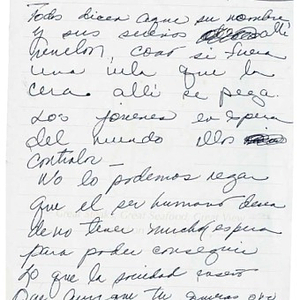 Todos dicen aque su nombre
y sus sueños allí
como si fuera
una vela que la
cera allí se pega.
Los jóvenes en espera
del mundo ellos
controlor —
No lo podemos negar
que el ser humano desea
de no tener mucha espera
para poder conseguir
Lo que la sociedad
que tu quieras